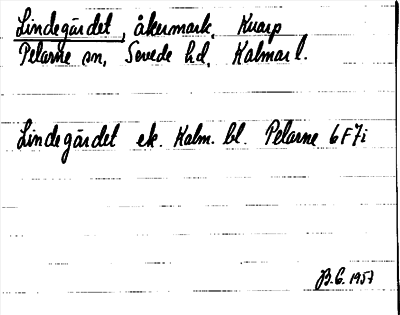 Lindegärdet, åkermark, Kuarp
Pelarne sn, Sevede hd, Kalmar l.
Lindegärdet ek. Kalm. bl. Pelarne 6F7i
B.G. 1957